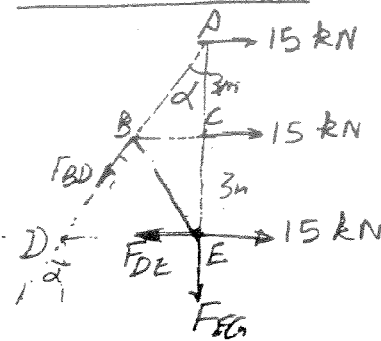 A 15 kN
α 3m
B C 15 kN
F_BD 3m
D E 15 kN
α F_DE
F_EG